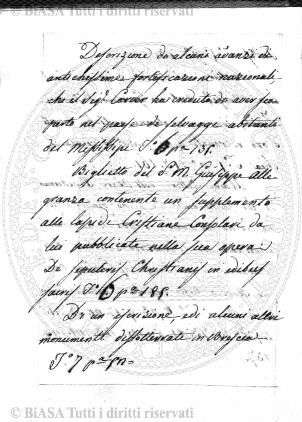 © BiASA Tutti i diritti riservati
Descrizione de alcuni avanzi di
antichissime fortificazioni nazionali
che il Sig.r Carver ha creduto di aver sco
perto nel paese de selvaggi abitanti
del Missisipi T.o 6 p.a 135.
Biglietto del S.r M. Giuseppe Alle
granza contenente un supplemento
alle lapide Cristiane Consolari da
lui pubblicate nella sua opera
De sepulcris Christianis in edibus
sacris T.o 6 p.a 185.
Di un iscrizione, e di alcuni altri
monumenti dissotterrati in Brescia
T.o 7 p.a
© BiASA Tutti i diritti riservati